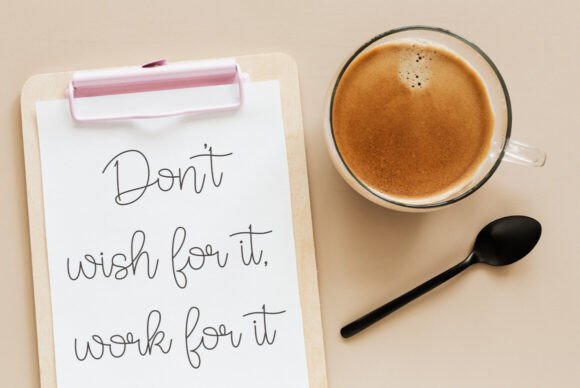 Don't
wish for it,
work for it